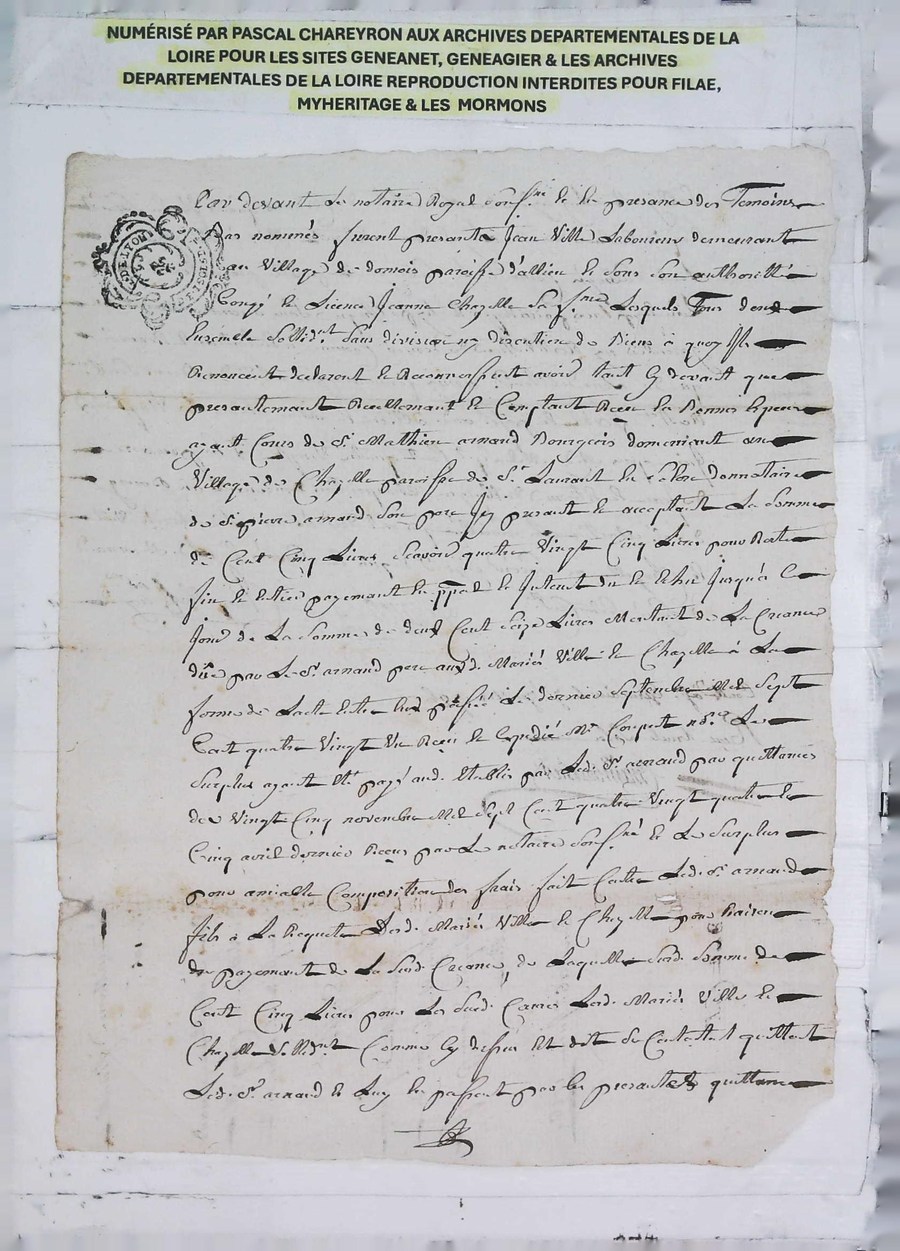 NUMÉRISÉ PAR PASCAL CHAREYRON AUX ARCHIVES DEPARTEMENTALES DE LA
LOIRE POUR LES SITES GENEANET, GENEAGIER & LES ARCHIVES
DEPARTEMENTALES DE LA LOIRE REPRODUCTION INTERDITES POUR FILAE,
MYHERITAGE & LES MORMONS
Par devant le notaire Royal sous.né et en presance des Temoins
Bas nommés furent presants Jean Ville Laboureur demeurant
au Village de domois paroisse d'allieu et sous son authorité
Congé et Licence Jeanne Chazelle sa f.me Lesquels Tous deux
Ensemble sollid.nt sans division ny discution de Biens à quoy ils
Renoncent declarent et Reconnoissent avoir tant cy devant que
presantemant Reellemant et Comptant Receu en Bonnes Especes
ayant Cours de S.r Mathieu arnaud Bourgeois demeurant au
Village de Chazelle paroisse de S.t Laurant en qualité de donnataire
de S.r pierre arnaud son pere Icy presant et acceptant La somme
de Cent Cinq Livres scavoir quatre Vingt Cinq Livres pour Reste
fin et Entier payemant en ppal et Interest du et Echu Jusques à ce
Jour de La somme de deux Cent seize Livres Montant de La Creance
düe par Le S.r arnaud pere auxd. Mariés Ville et Chazelle à La
forme de Lacte Entre Eux passé Le dernier Septembre Mil Sept
Cent quatre Vingt Un Receu et Expedié M.e Coupat no.re Le
Surplus ayant Eté payé aud. Etablis par Led. S.r arnaud par quittances
des Vingt Cinq novembre Mil Sept Cent quatre Vingt quatre et
Cinq avril dernier Receus par Le notaire sous.né et Le Surplus
pour amiable Composition des frais fait Contre Led. S.r arnaud
fils à La Requete Desd. Mariés Ville et Chazelle pour Raison
du payemant de La Susd. Creance, de Laquelle Susd. Somme de
Cent Cinq Livres pour Les Susd. Causes Lesd. Mariés Ville et
Chazelle sollid.nt Comme cy dessus Est dit se Contentent quittent
Led. S.r arnaud et Luy En passent par Ces presantes quittance